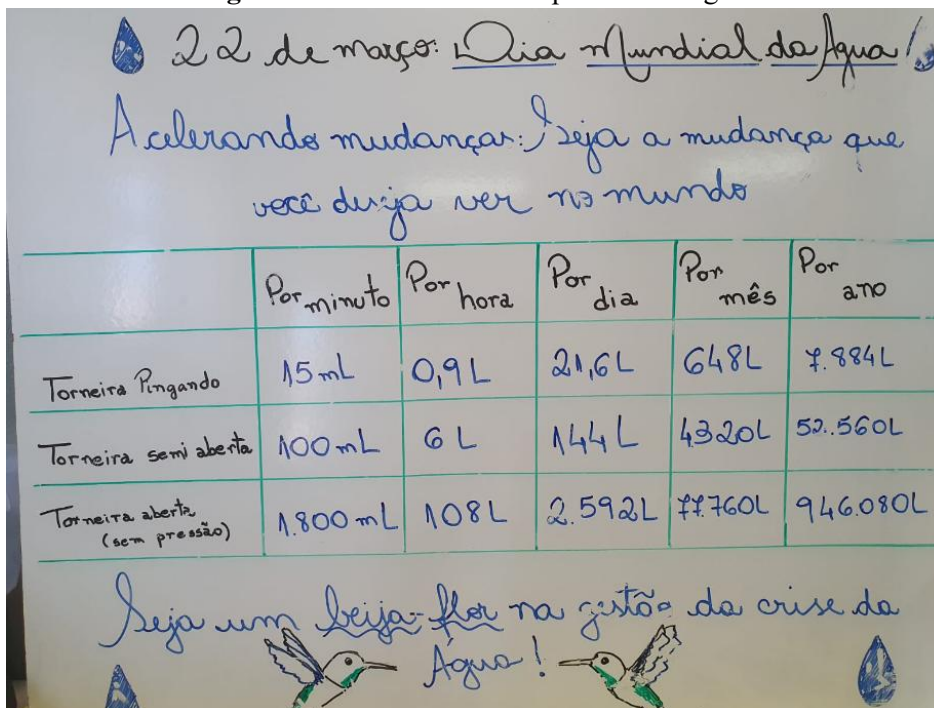 22 de março: Dia Mundial da Água!
Acelerando mudanças: Seja a mudança que
você deseja ver no mundo
Por minuto Por hora Por dia Por mês Por ano
Torneira Pingando 15 mL 0,9 L 21,6 L 648 L 7.884 L
Torneira semi aberta 100 mL 6 L 144 L 4320 L 52.560 L
Torneira aberta (sem pressão) 1.800 mL 108 L 2.592 L 77.760 L 946.080 L
Seja um beija-flor na gestão da crise da
Água!